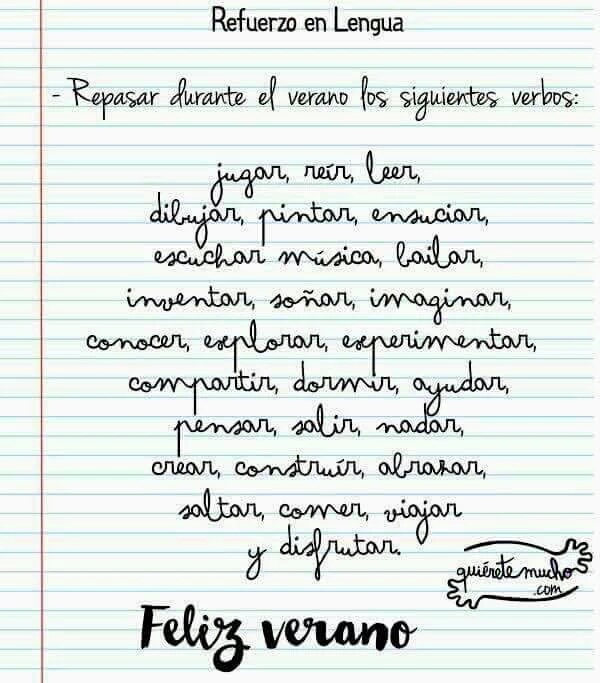 Refuerzo en Lengua
- Repasar durante el verano los siguientes verbos:
jugar, reír, leer,
dibujar, pintar, ensuciar,
escuchar música, bailar,
inventar, soñar, imaginar,
conocer, explorar, experimentar,
compartir, dormir, ayudar,
pensar, salir, nadar,
crear, construír, abrazar,
saltar, comer, viajar
y disfrutar.
quiéretemucho
.com
Feliz verano